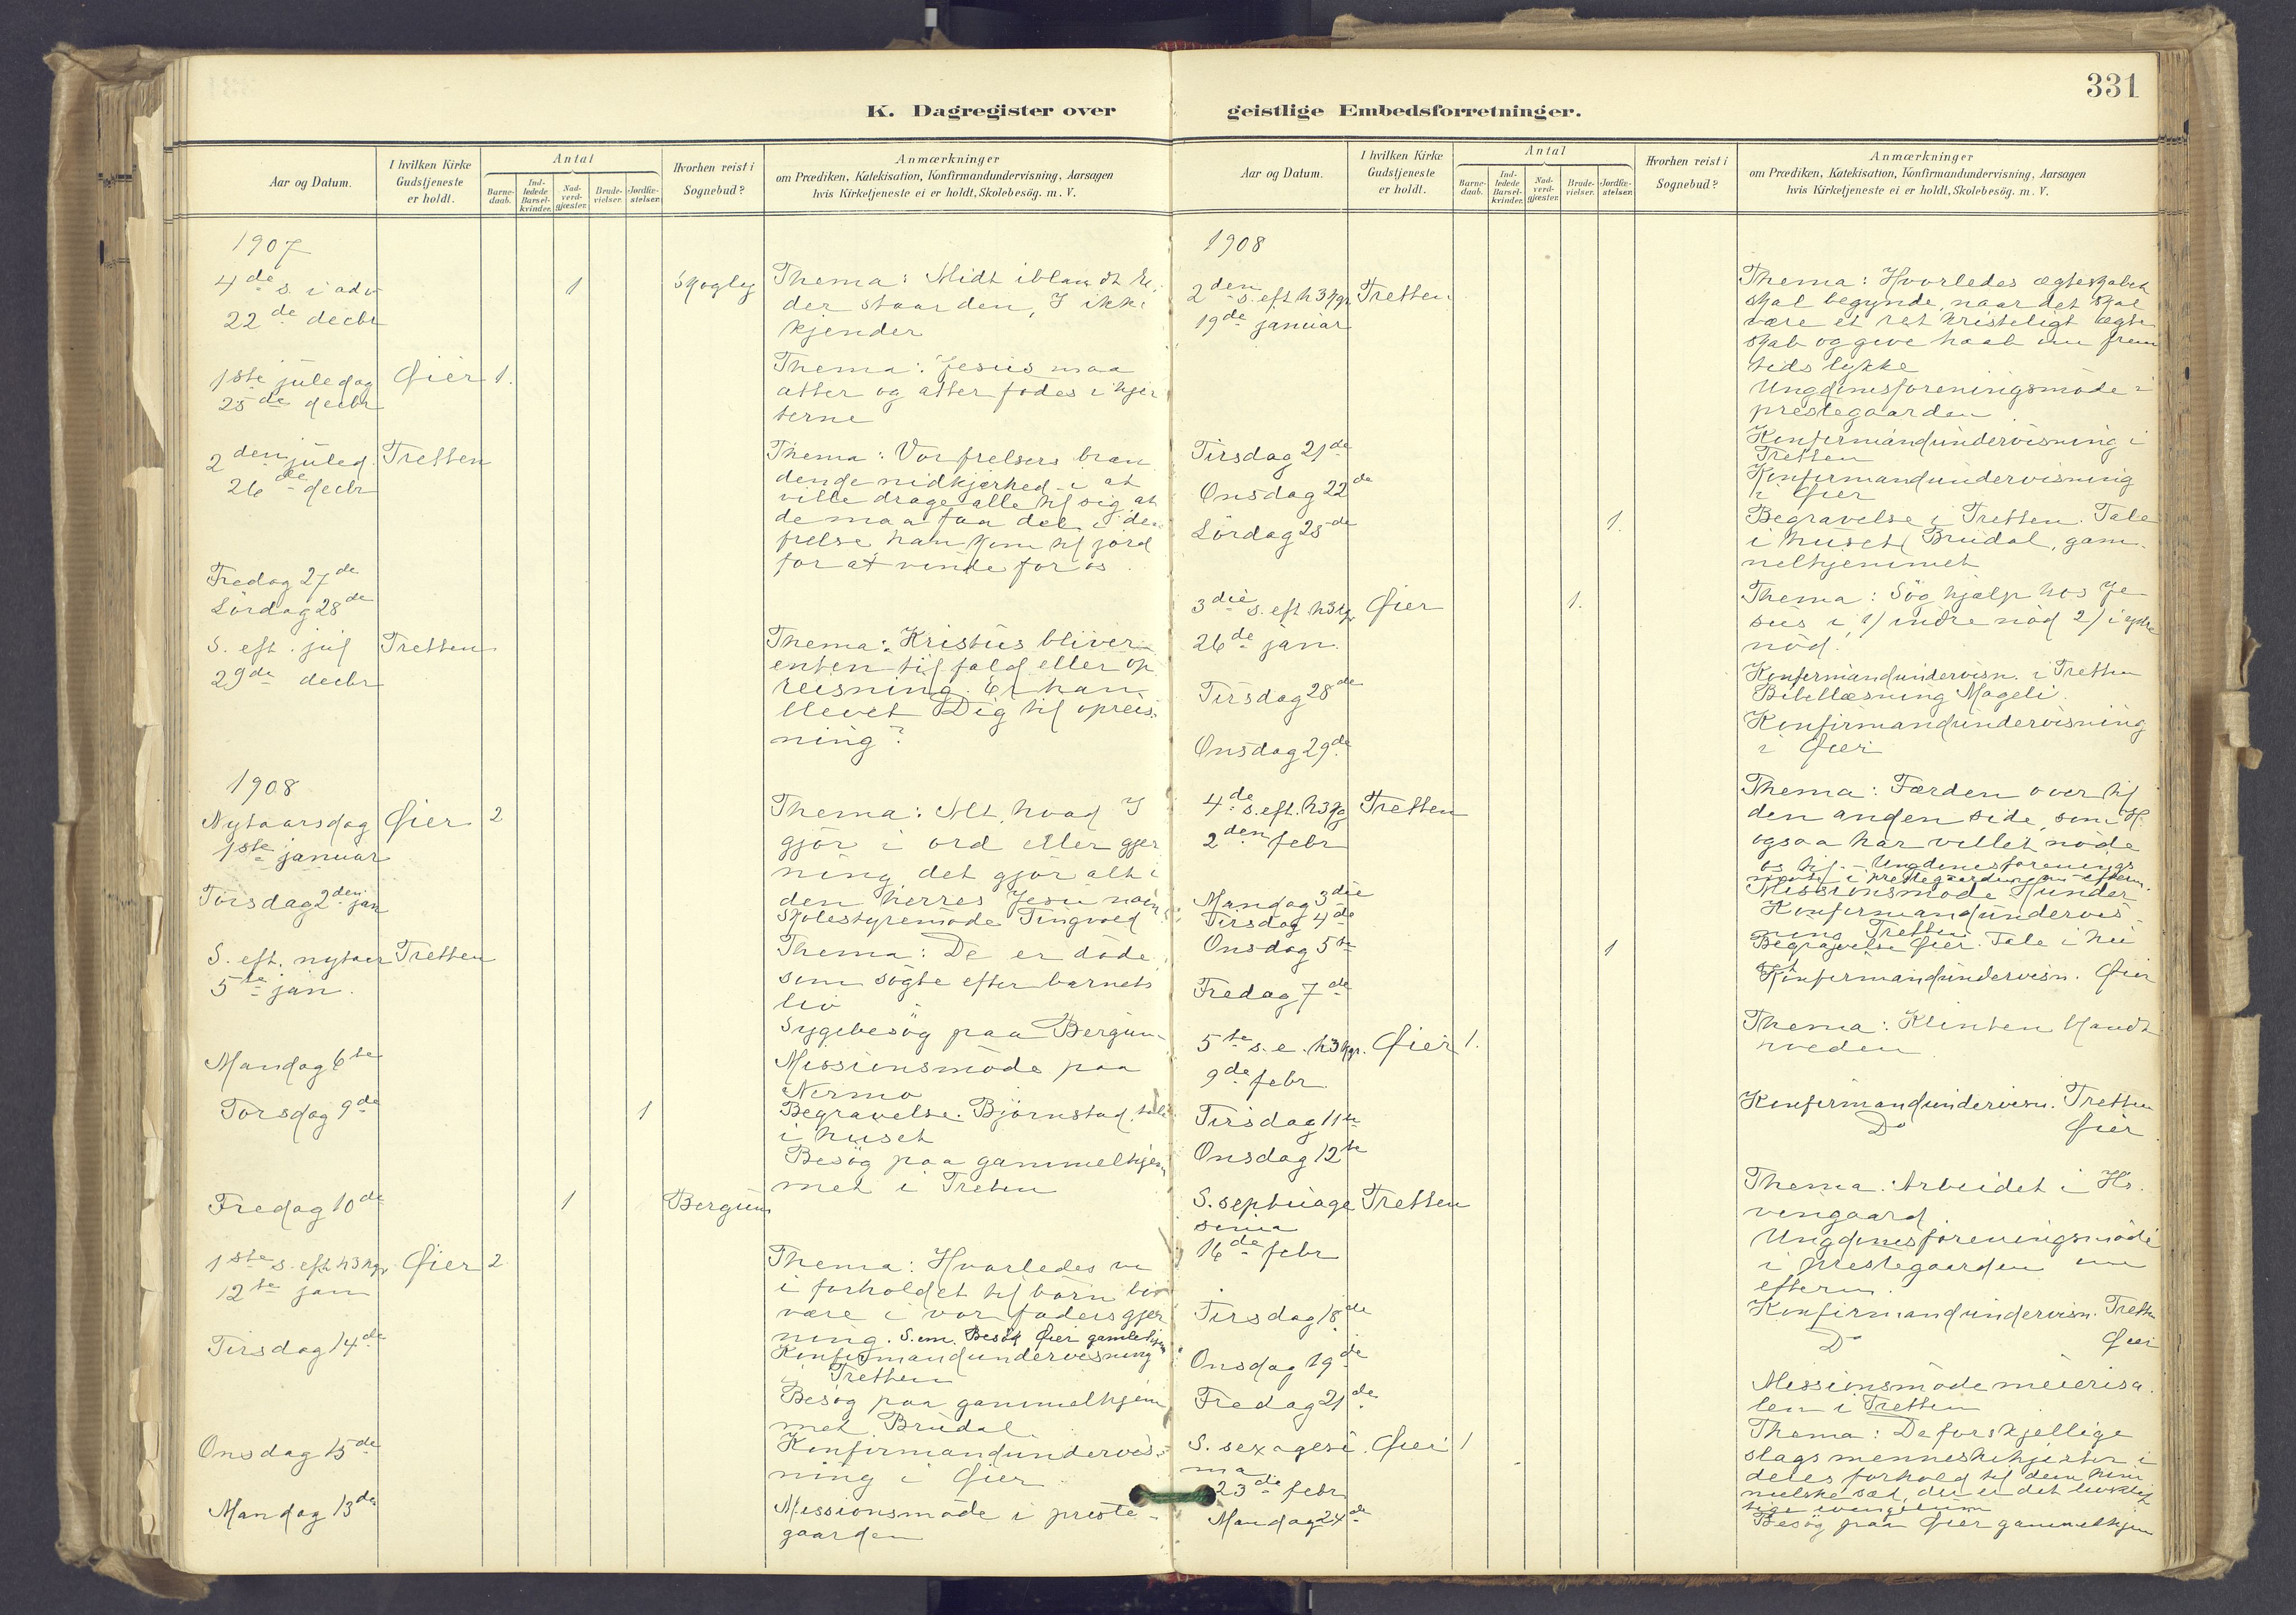 331
K. Dagregister over geistlige Embedsforretninger.
Aar og Datum.
I hvilken Kirke Gudstjeneste er holdt.
Antal
Barne-daab.
Ind-ledede Barsel-kvinder.
Nad-verd-gjæster.
Brude-vielser.
Jordfæ-stelser.
Hvorhen reist i Sognebud?
Anmærkninger
om Prædiken, Katekisation, Konfirmandundervisning, Aarsagen
hvis Kirketjeneste ei er holdt, Skolebesøg. m. V.
1907
4de s. i adv 1 Skogly Thema: Midt iblandt E-
22de decbr der staar den, I ikke
kjender
1ste juledag Øier 1. Thema: Jesus maa
25de decbr atter og atter fødes i hjer
terne
2den juled. Tretten Thema: Vor frelsers bræn
26de decbr dende nidkjærhed i at
ville drage alle til sig at
de maa faa del i den
frelse han kom til jord
for at vinde for os.
Fredag 27de
Lördag 28de
S. eft. jul Tretten Thema: Kristus bliver
29de decbr enten til fald eller op
reisning. Er han
blevet Dig til opreis-
ning?
1908
Nytaarsdag Øier 2 Thema: Alt, hvad I
1ste januar gjör i ord eller gjer
ning det gjör alt i
den herres Jesu navn
Torsdag 2den jan Skolestyremöde Tingvold
S. eft. nytaar Tretten Thema: De er döde,
5te jan. som sögte efter barnets
liv
Sygebesög paa Bergum
Mandag 6te Missionsmöde paa
Nermo
Torsdag 9de 1 Begravelse. Björnstad. tale
i huset
Besög paa gammelhjem
met i Treten
Fredag 10de 1 Bergum
1ste s. eft. h3kgr Øier 2 Thema: Hvorledes vi
12te jan i forholdet til börn bör
være i vor faders gjer
ning. S. em. Besög Øier gamlehjem
Tirsdag 14de Konfirmandundervisning
i Tretten
Besög paa gammelhjem
met Brudal.
Onsdag 15de Konfirmandundervis-
ning i Øier
Mandag 13de Missionsmöde i preste-
gaarden
Aar og Datum.
I hvilken Kirke Gudstjeneste er holdt.
Antal
Barne-daab.
Ind-ledede Barsel-kvinder.
Nad-verd-gjæster.
Brude-vielser.
Jordfæ-stelser.
Hvorhen reist i Sognebud?
Anmærkninger
om Prædiken, Katekisation, Konfirmandundervisning, Aarsagen
hvis Kirketjeneste ei er holdt, Skolebesøg. m. V.
1908
2den s. eft. h3kgr Tretten Thema: Hvorledes ægteskabet
19de januar skal begynde, naar det skal
være et ret kristeligt ægte
skab og give haab om frem
tids lykke
Ungdomsforeningsmöde i
prestegaarden
Tirsdag 21de Konfirmandundervisning i
Tretten
Onsdag 22de Konfirmandundervisning
i Øier
Lördag 25de 1. Begravelse i Tretten. Tale
i huset Brudal, gam-
melhjemmet
3die s. eft h3kgr Øier 1. Thema: Sög hjælp hos Je
26de jan. sus i 1) indre nöd 2) i ydre
nöd.
Tirsdag 28de Konfirmandundervisn. i Tretten
Bibellæsning Mageli.
Onsdag 29de Konfirmandundervisning
i Øier
4de s. eft. h3kg Tretten Thema: Færden over til
2den febr den anden side, som H.
ogsaa har villet nöde
os til. - Ungdomsforenings
möde i prestegaarden om efterm.
Mandag 3die Missionsmöde Hunder
Tirsdag 4de Konfirmandundervis-
ning Tretten
Onsdag 5te 1 Begravelse Øier. Tale i hu
set
Fredag 7de Konfirmandundervisn. Øier
5te s. e. h3kgr. Øier 1. Thema: Klinten blandt
9de febr. hveden
Tirsdag 11te Konfirmandundervisn. Tretten
Onsdag 12te Do Øier
S. septuage Tretten Thema: Arbeidet i Hs.
sima vingaard.
16de febr Ungdomsforeningsmöde
i prestegaarden om
efterm.
Tirsdag 18de Konfirmandundervisn. Tretten
Onsdag 19de Do Øier
Fredag 21de Missionsmöde meierisa
len i Tretten
S. sexagesi Øier 1 Thema: De forskjellige
ma slags menneskehjerter i
23de febr deres forhold til den him
melske sæd, der er det
evangelium
Mandag 24de Besög paa Øier gammelhjem